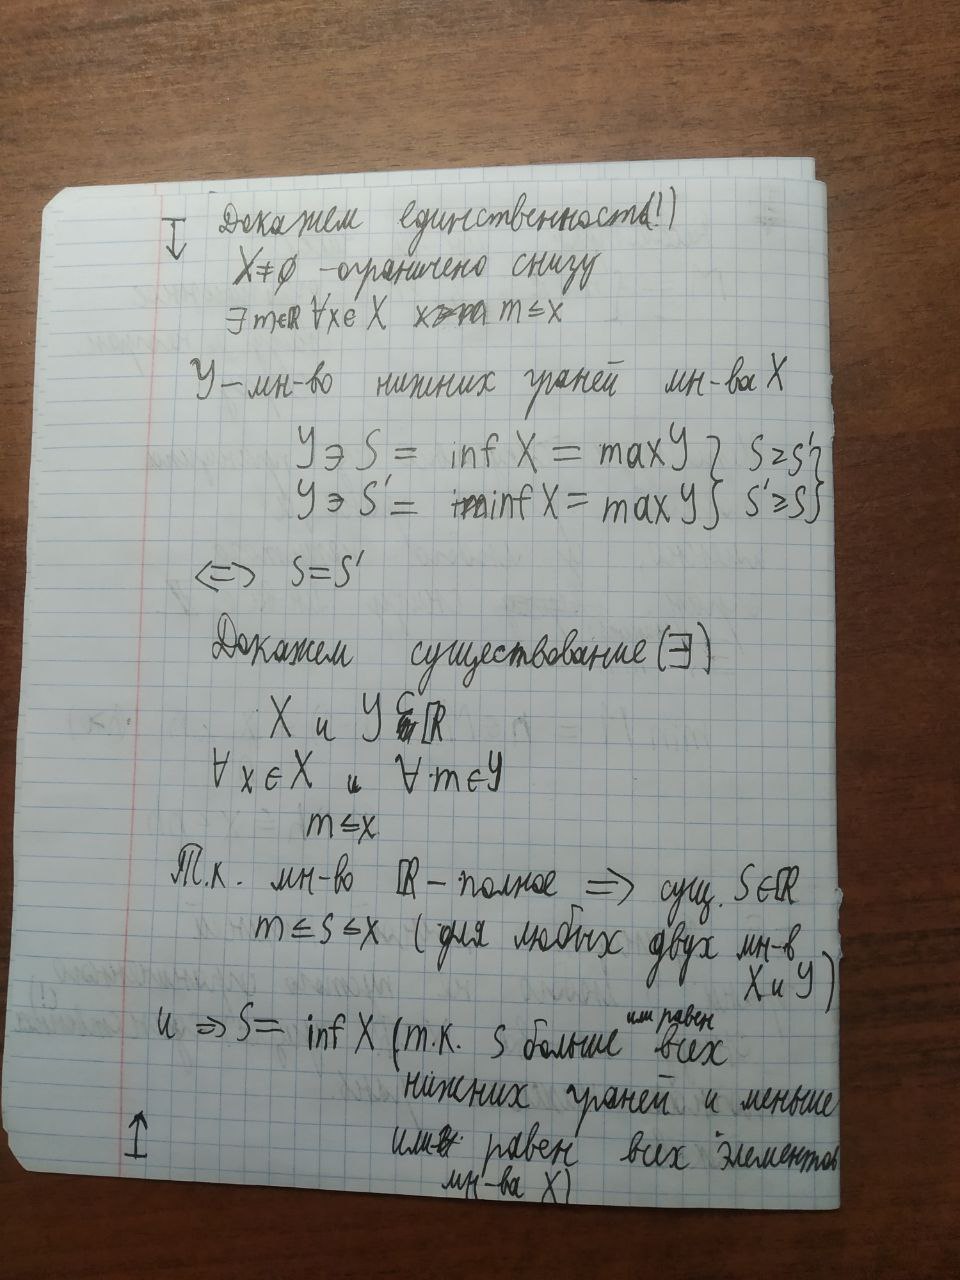 Докажем единственность(!)
X≠∅ - ограничено снизу
∃ m∈ℝ ∀x∈X m≤x
Y – мн-во нижних граней мн-ва X
Y∋S = inf X = max Y } S≥S' }
Y∋S' = inf X = max Y } S'≥S }
<=> S=S'
Докажем существование (∃)
X и Y ⊆ ℝ
∀x∈X и ∀m∈Y
m≤x
Т.к. мн-во ℝ – полное => сущ. S∈ℝ
m≤S≤x (для любых двух мн-в
X и Y)
и => S= inf X (т.к. S больше или равен всех
нижних граней и меньше
или равен всех элементов
мн-ва X)